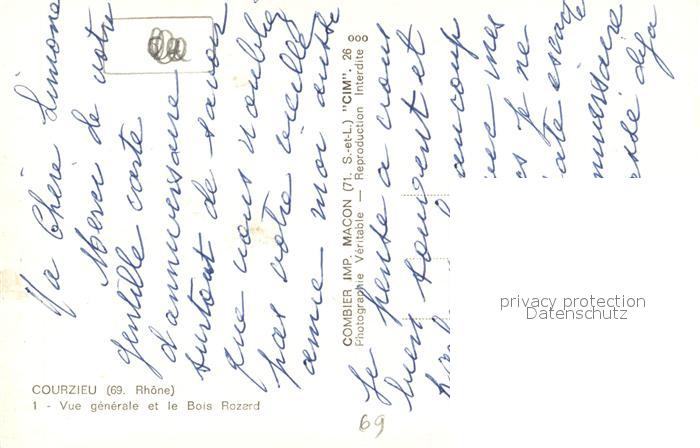 Ma Chère Simone
Merci de votre
gentille carte
d'anniversaire
surtout de savoir
que vous n'oubliez
pas votre vieille
amie moi aussi
Je pense à vous
bien souvent et
aucoup
mes
Je ne
ate
nniversaire
déjà
COMBIER IMP. MACON (71. S.-et-L.) "CIM". 26 ooo
Photographie Véritable — Reproduction Interdite
privacy protection
Datenschutz
COURZIEU (69. Rhône)
1 - Vue générale et le Bois Rozard
69